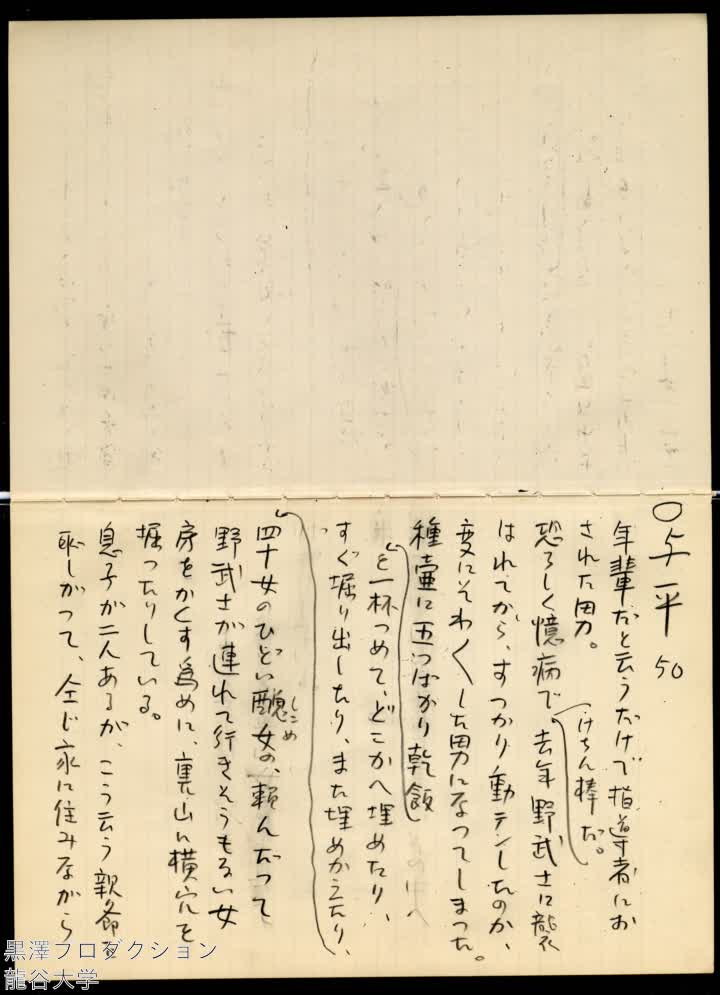 ○与平 50
年輩だと云うだけで指導者にお
された男。
けちん棒だ。
恐ろしく憶病で、去年野武士に襲
はれてから、すつかり動テンしたのか、
変にそわ〱した男になつてしまつた。
種壷に五つばかり乾飯
を一杯つめて、どこかへ埋めたり、
すぐ堀り出したり、また埋めかえたり、
四十女のひどい醜女の、頼んだつて
しこめ
野武士が連れて行きそうもない女
房をかくす為めに、裏山に横穴を
堀つたりしている。
息子が二人あるが、こう云う親爺を
恥しがつて、仝じ家に住みながら
黒澤プロダクション
龍谷大学